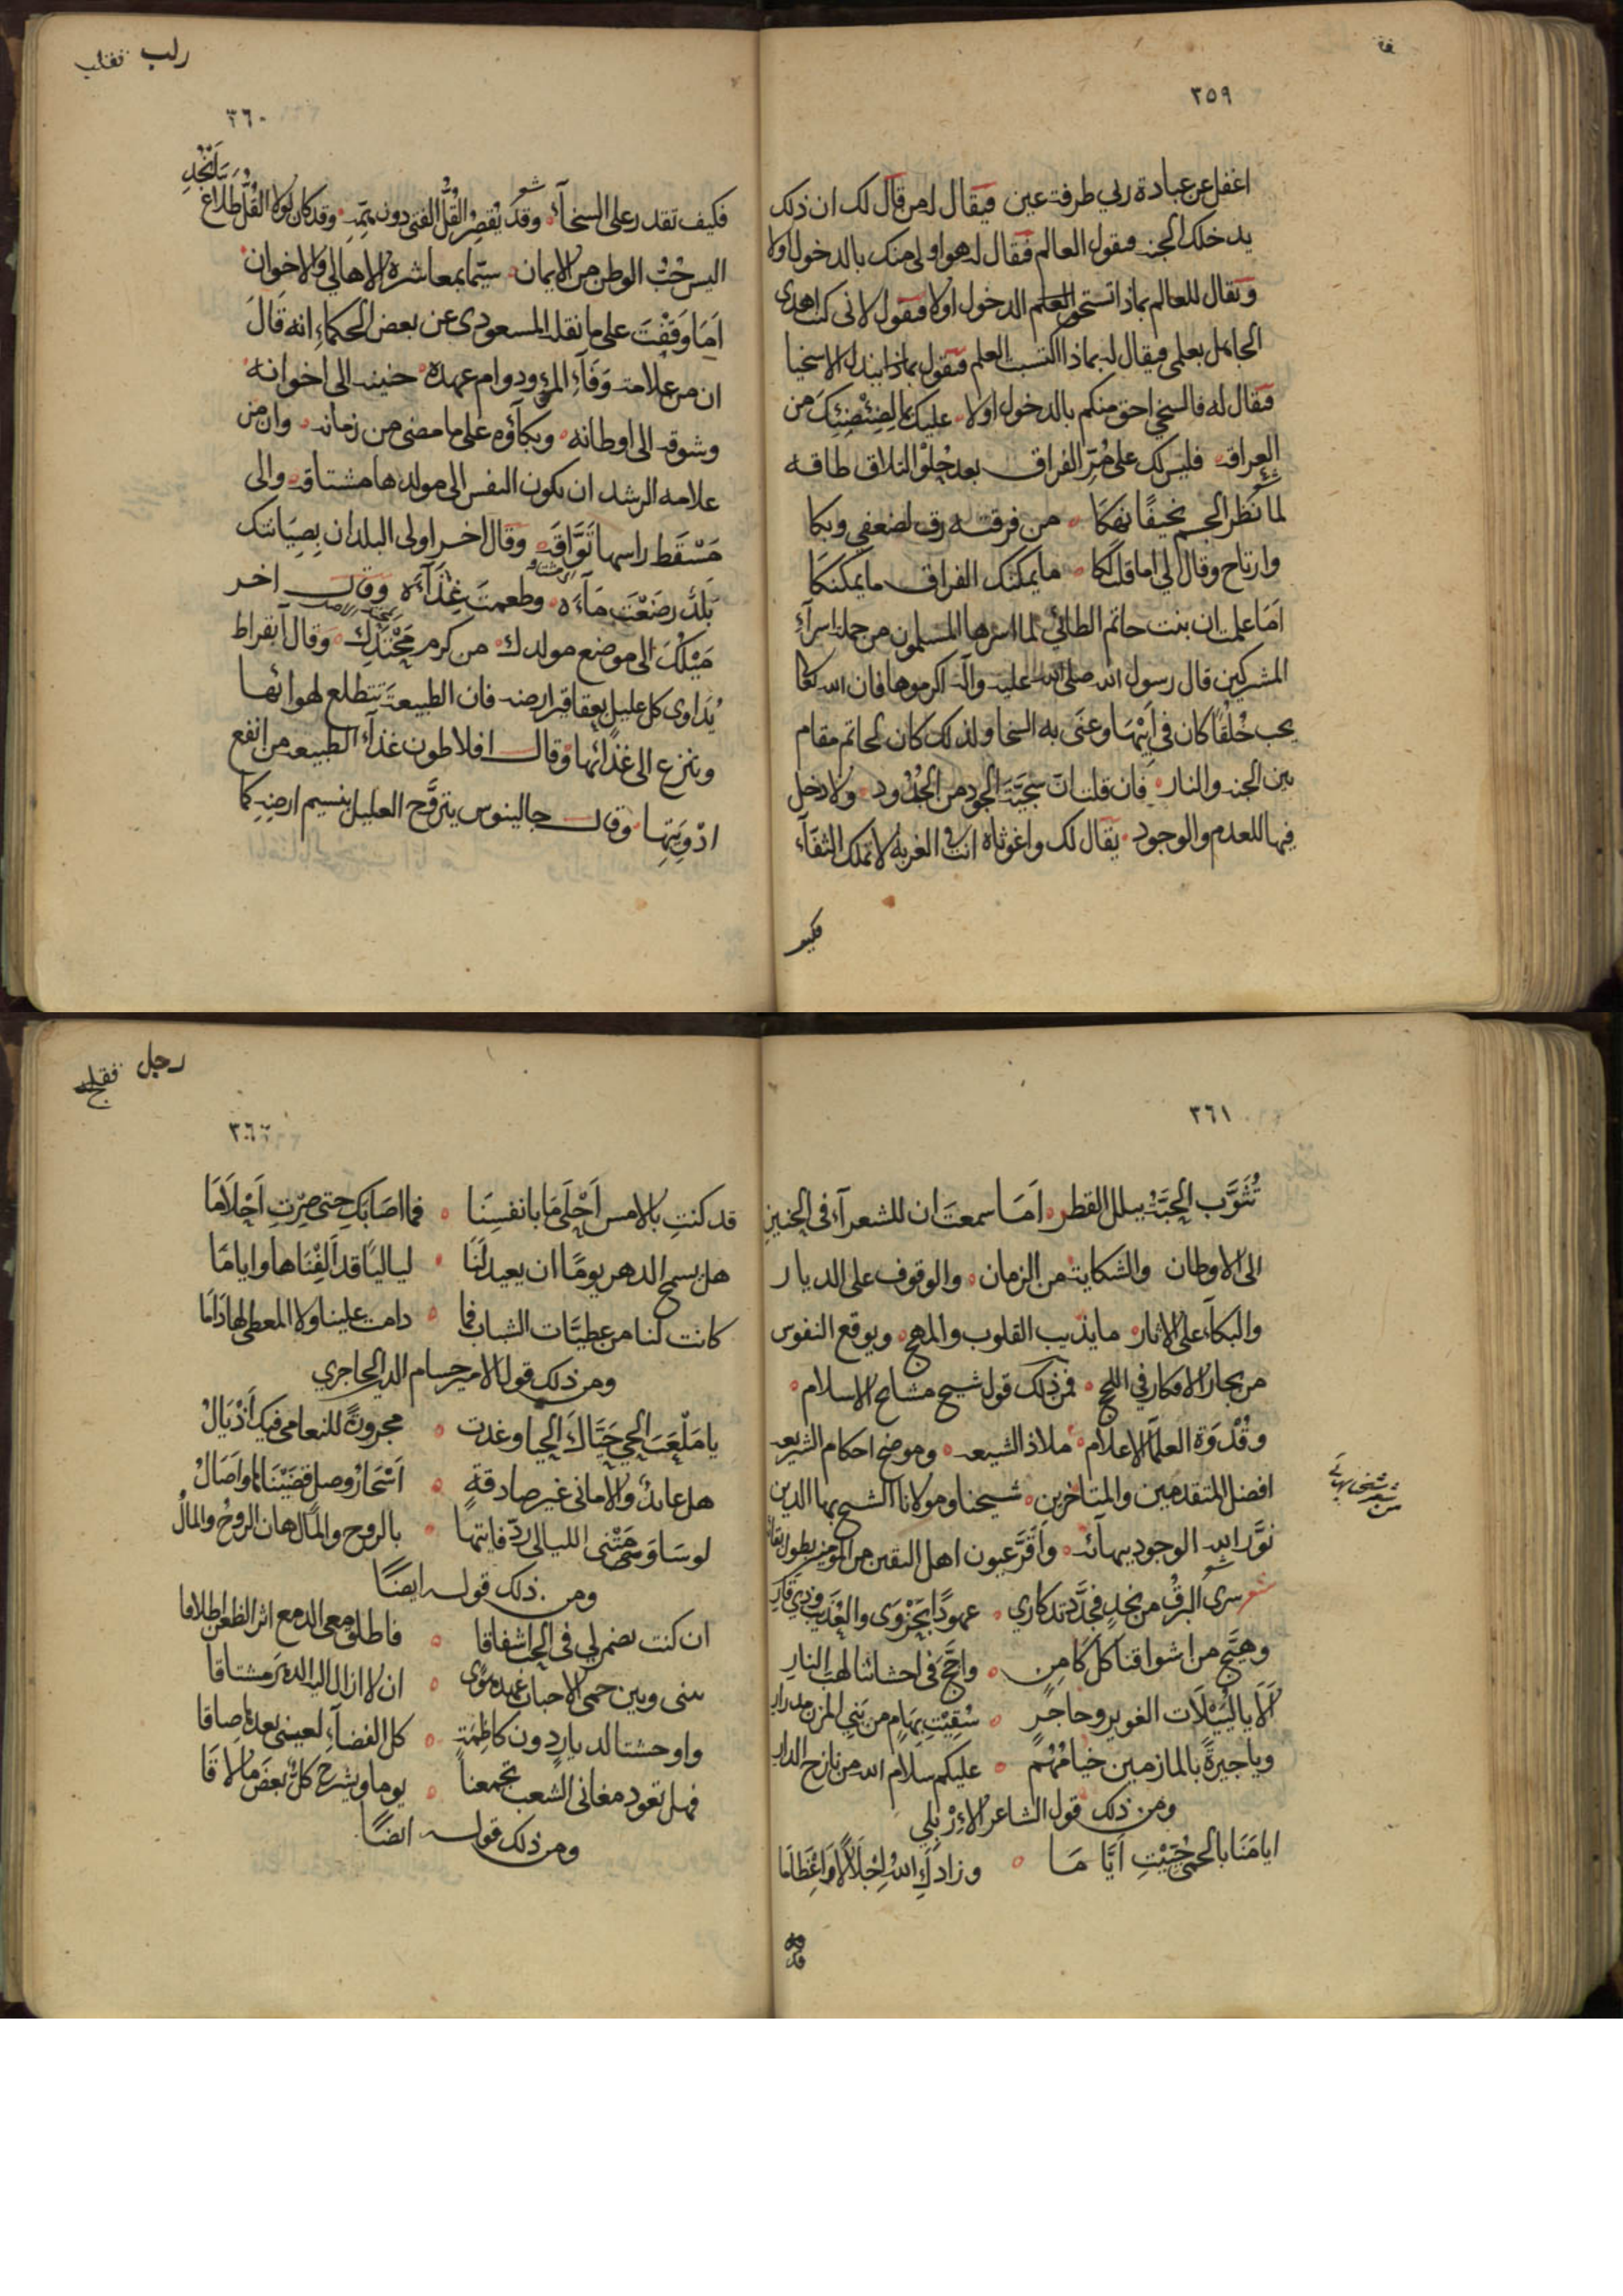 ٣٥٩
اغفل عن عبادة ربي طرفة عين فيقال له من قال لك ان ذلك
يدخلك الجنه فيقول العالم فقال له هو اولى منك بالدخول اولا
ويقال للعالم بماذا تستحق العلم الدخول اولا فيقول لانى كنت اهدى
الجاهل بعلمى فيقال له بماذا اكتسبت العلم فيقول بماذا يبذله الاسخيا
فيقال له فالسخي احق منكم بالدخول اولا عليك بالضئضئيك من
العراقه فليس لك على مُرّ الفراق بعد حُلوْ التلاق طاقه
لما نَظَر الجسم نحيفًا نَهِكَا من فرقته رق لضعفي وبكا
وارتاح وقال لي اما قلت لكا ما يمكنك الفراق ما يمكنكا
اَمَا علمت ان بنت حاتم الطائي لما اسرها المسلمون من جملة اسرآءِ
المشركين قال رسول الله صلى الله عليه وآله اكرموها فان الله تعالى
يحب خُلقًا كان في اَبيْهَا وعَنَى به السخا ولذلك كان لحاتم مقام
بين الجنه والنار فان قلت ان سَجيَّة الجود من الجُدُود ولا دخل
فيها للعدم والوجود يقال لك واغوثاه انت في الغربه لا تملك الثقآء
فكيف
رلب
٣٦٠
فكيف تقدر على السخآءِ شعر وقد يُقصِرُ القُلُّ الفتى دون هِمّهِ وقد كان لولا القُلّ طلّاع اَنْجُدِ
اليس حُبُّ الوطن من الايمان سيّما بمعاشرة الاهالي والاخوان
اَمَا وَقَفْتَ على ما نقله المسعودى عن بعض الحكماءِ انه قَالَ
ان من علامة وَفَآءِ المرءِ ودوام عهده حنينه الى اخوانه
وشوقه الى اوطانه وبكآؤه على ما مضى من زمانه وان من
علامه الرشد ان يكون النفس الى مولدها مشتاقه والى
مَسْقَط راسها تَوَّاقَه وقال اخر اولى البلدان بِصِيَانتك
بَلَدٌ رضَعْتَ مَآءَه وطعمتَ غِذَآءَه وقال اخر
مَيْلُكَ الى موضع مولدك من كرم مَحْتِدِك وقال ابقراط
يُدَاوى كل عليل بعقاقير ارضه فان الطبيعةَ تتطلع لهوائها
وتنزع الى غذائها وقال افلاطون غذآءُ الطبيعه من انفع
اَدْوِيَتِهِا وقال جالينوس يتروَّح العليل بنسيم ارضِه كما
٣٦١
تُثوَّب الحِبَّة ببلل القطر اَمَا سمعتَ ان للشعرآءِ فى الحنين
الى الاوطان والشكاية من الزمان والوقوف على الديار
والبكآءِ على الاثار ما يذيب القلوب والمهج ويوقع النفوس
من بحار الافكار في اللجج فمن ذلك قول شيخ مشايخ الاسلام
وقُدْوَة العلمآءِ الاعلام ملاذ الشيعه وموضح احكام الشريعه
افضل المتقدمين والمتاخرين شيخنا ومولانا الشيخ بهآ الدين
نوَّر الله الوجود ببهآئه واَقَرَّ عيون اهل اليقين من المؤمنين بطول بقآئه
شعر سرى البرقُ من نجدٍ فجدَّد تذكاري عهودًا بحُزْوَى والعُذَيب وذي قارِ
وهيَّج من اشواقنا كل كامنٍ واجّج فى احشائنا لهب النارِ
اَلَا يا لُيَيْلَات الغوير وحاجرٍ سُقِيْتِ بِهامٍ من بَني المزن مدرارِ
ويا جيرةً بالمازمين خيامُهُم عليكم سلام الله من نازح الدارِ
ومن ذلك قول الشاعر الاِرْبِلي
ايامَنَا بالحمى حُيِّيْتِ اَيَّامَا وزادكِ اللهُ اِجْلَالًا وَاعْظَامَا
من شعر شيخ بهائى
قد
رجل
٣٦٢
قد كنتِ بالامس اَحْلَى مَا بانفسِنَا فما اصَابَكِ حتى صِرْتِ اَحْلَامَا
هل يسمح الدهر يومًا ان يعيد لنَا لياليًا قد اَلِفْنَاها وايامَا
كانت لنا من عطيَّات الشباب فما دامت علينا ولا المعطى لها دَامَا
ومن ذلك قول الامير حسام الدين الحاجري
يا مَلْعَبَ الحي حَيَّاكَ الحيا وغدت مجرورةً للنعامى فيك اَذْيَالُ
هل عائدٌ والامانى غير صادقةٍ اَسْحَارُ وصلٍ قضَيْنَاها واَصَالُ
لو ساوَمَتْنى الليالى ردّ فايتها بالروح والمال هان الروحُ والمالُ
ومن ذلك قوله ايضًا
ان كنت تضمر لي فى الحب اشفاقا فاطلق معى الدمع اثر الظعن اطلاقا
بينى وبين حمى الاحباب عهد هوًى ان لا ازال اليه الدهرَ مشتاقا
واوحشتا لديارٍ دون كاظِمَةٍ كل الفضآءِ لعينى بعدها ضاقا
فهل تعود مغانى الشعب تجمعنا يوما ويشرح كلٌّ بعضَ ما لاقَا
ومن ذلك قوله ايضًا